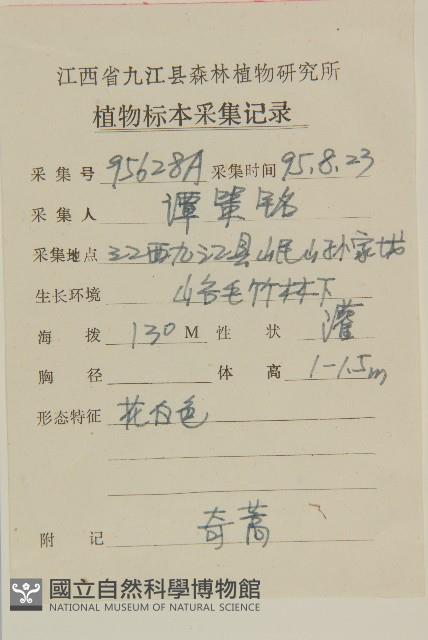 江西省九江县森林植物研究所
植物标本采集记录
采集号 95628A 采集时间 95.8.23
采集人 谭策铭
采集地点 江西九江县岷山孙家垅
生长环境 山谷毛竹林下
海拨 130 M 性状 灌
胸径 体高 1-1.5m
形态特征 花白色
附记 奇蒿
國立自然科學博物館
NATIONAL MUSEUM OF NATURAL SCIENCE